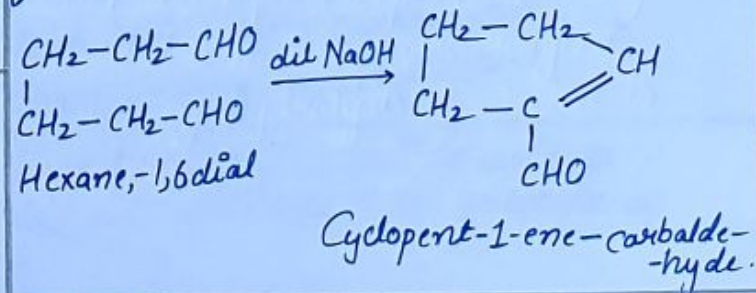 CH2-CH2-CHO
|
CH2-CH2-CHO
Hexane,-1,6dial
dil NaOH
CH2-CH2
CH
|
CH2-C
|
CHO
Cyclopent-1-ene-carbalde-
-hyde.